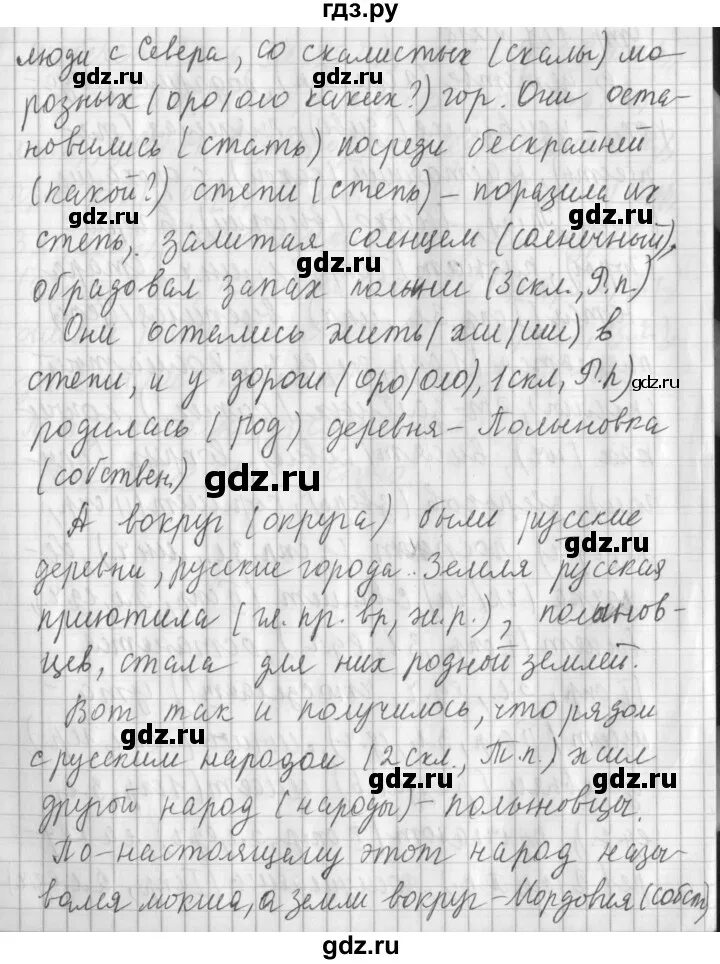 гдз.ру
люди с Севера, со скалистых (скалы) мо-
gdz.ru gdz.ru
розных (оро/оло каких?) гор. Они оста-
новились (стать) посреди бескрайней
(какой?) степи (степь) – поразила их
gdz.ru gdz.ru
степь, залитая солнцем (солнечный),
gdz.ru
обрадовал запах полыни (3скл., Р.п.)
Они остались жить (жи/ши) в
степи, и у дороги (оро/оло), 1скл, Р.п)
gdz.ru
родилась (род) деревня – Полыновка
(собствен.)
gdz.ru
А вокруг (округа) были русские
gdz.ru
деревни, русские города. Земля русская
приютила (гл. пр. вр, ж.р.), полынов-
цев, стала для них родной землей.
Вот так и получилось, что рядом
gdz.ru
с русским народом (2скл., Т.п.) жил
gdz.ru gdz.ru
другой народ (народы) – полыновцы.
По-настоящему этот народ назы-
вался мокша, а земли вокруг – Мордовия (собст)
gdz.ru